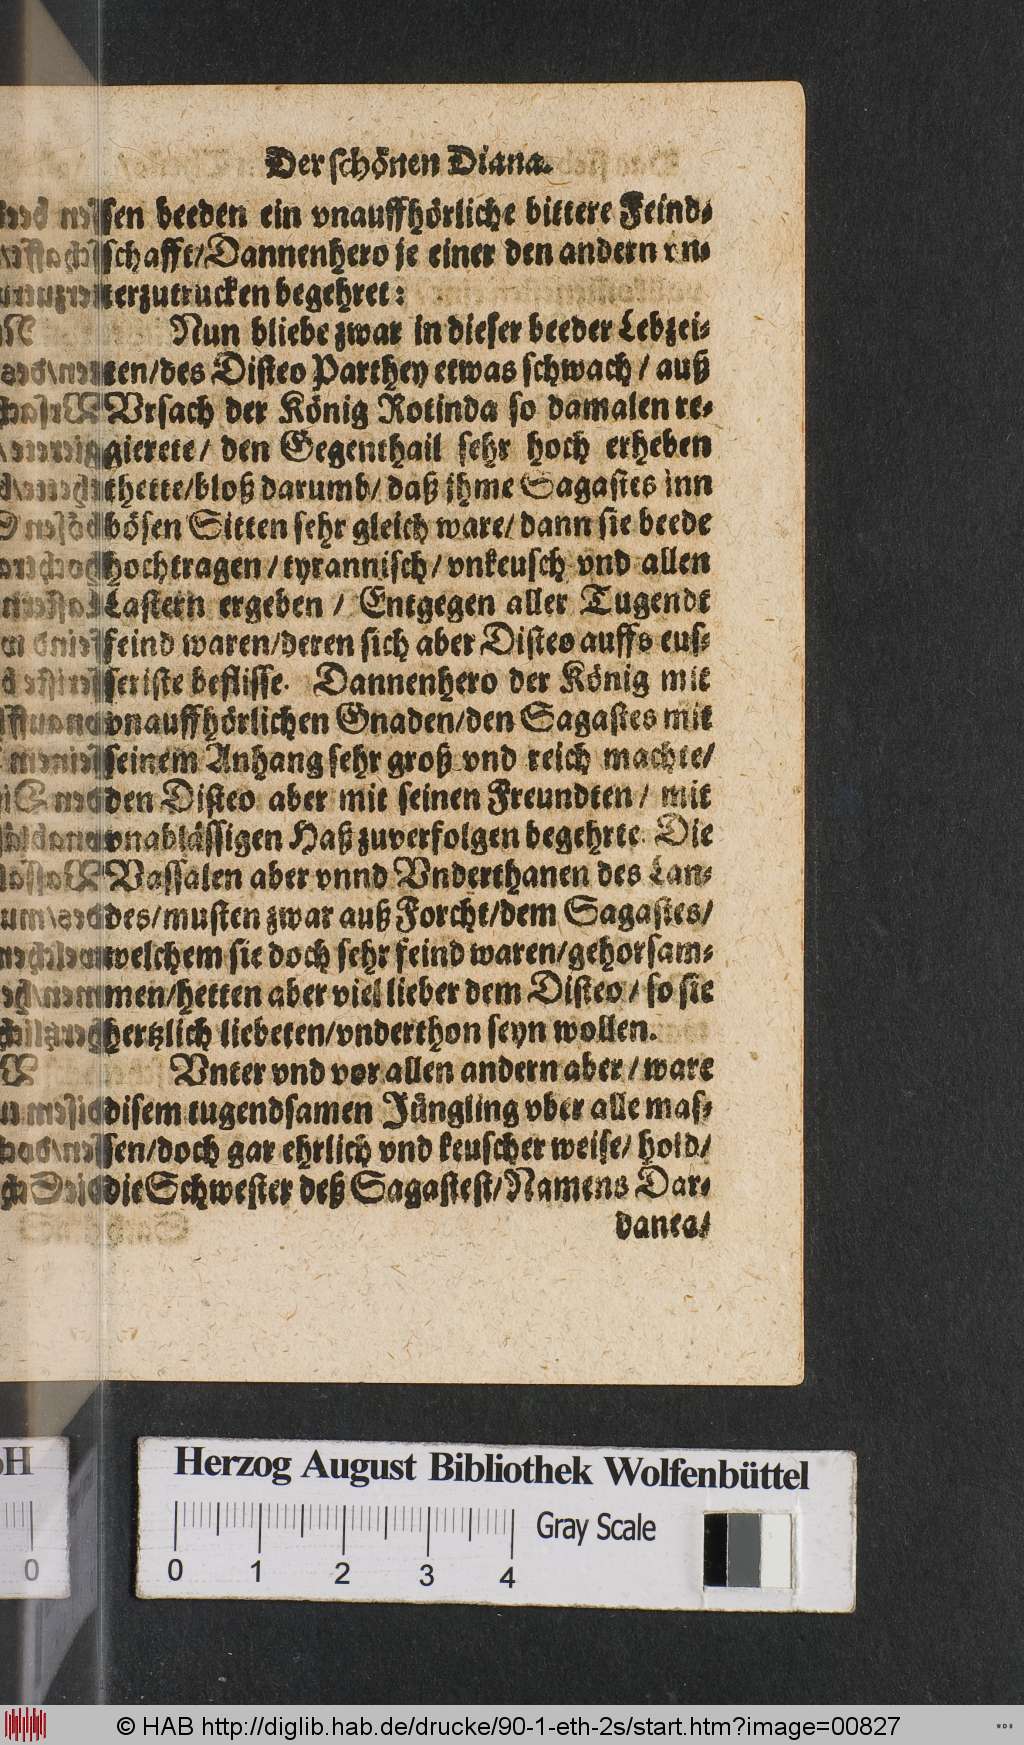 Der schönen Diana.
sen beeden ein vnauffhörliche bittere Feind-
schafft/Dannenhero je einer den andern vn-
terzutrucken begehret:
Nun bliebe zwar in dieser beeder Lebzei-
ten/des Disteo Parthey etwas schwach/ auß
Vrsach der König Rotinda so damalen re-
gierete/ den Gegenthail sehr hoch erheben
thette/bloß darumb/ daß ihme Sagastes inn
bösen Sitten sehr gleich ware/ dann sie beede
hochtragen/ tyrannisch/ vnkeusch vnd allen
Lastern ergeben / Entgegen aller Tugendt
feind waren/deren sich aber Disteo auffs eus-
seriste beflisse. Dannenhero der König mit
vnauffhörlichen Gnaden/den Sagastes mit
seinem Anhang sehr groß vnd reich machte/
den Disteo aber mit seinen Freundten/ mit
vnablässigen Haß zuverfolgen begehrte. Die
Vassalen aber vnnd Vnderthanen des Lan-
des/musten zwar auß Forcht/dem Sagastes/
welchem sie doch sehr feind waren/gehorsam-
men/hetten aber viel lieber dem Disteo/ so sie
hertzlich liebeten/vnderthon seyn wollen.
Vnter vnd vor allen andern aber/ ware
disem tugendsamen Jüngling vber alle mas-
sen/doch gar ehrlich vnd keuscher weise/ hold/
die Schwester deß Sagastest/Namens Dar-
danea/
Herzog August Bibliothek Wolfenbüttel
0 1 2 3 4
Gray Scale
0
© HAB http://diglib.hab.de/drucke/90-1-eth-2s/start.htm?image=00827